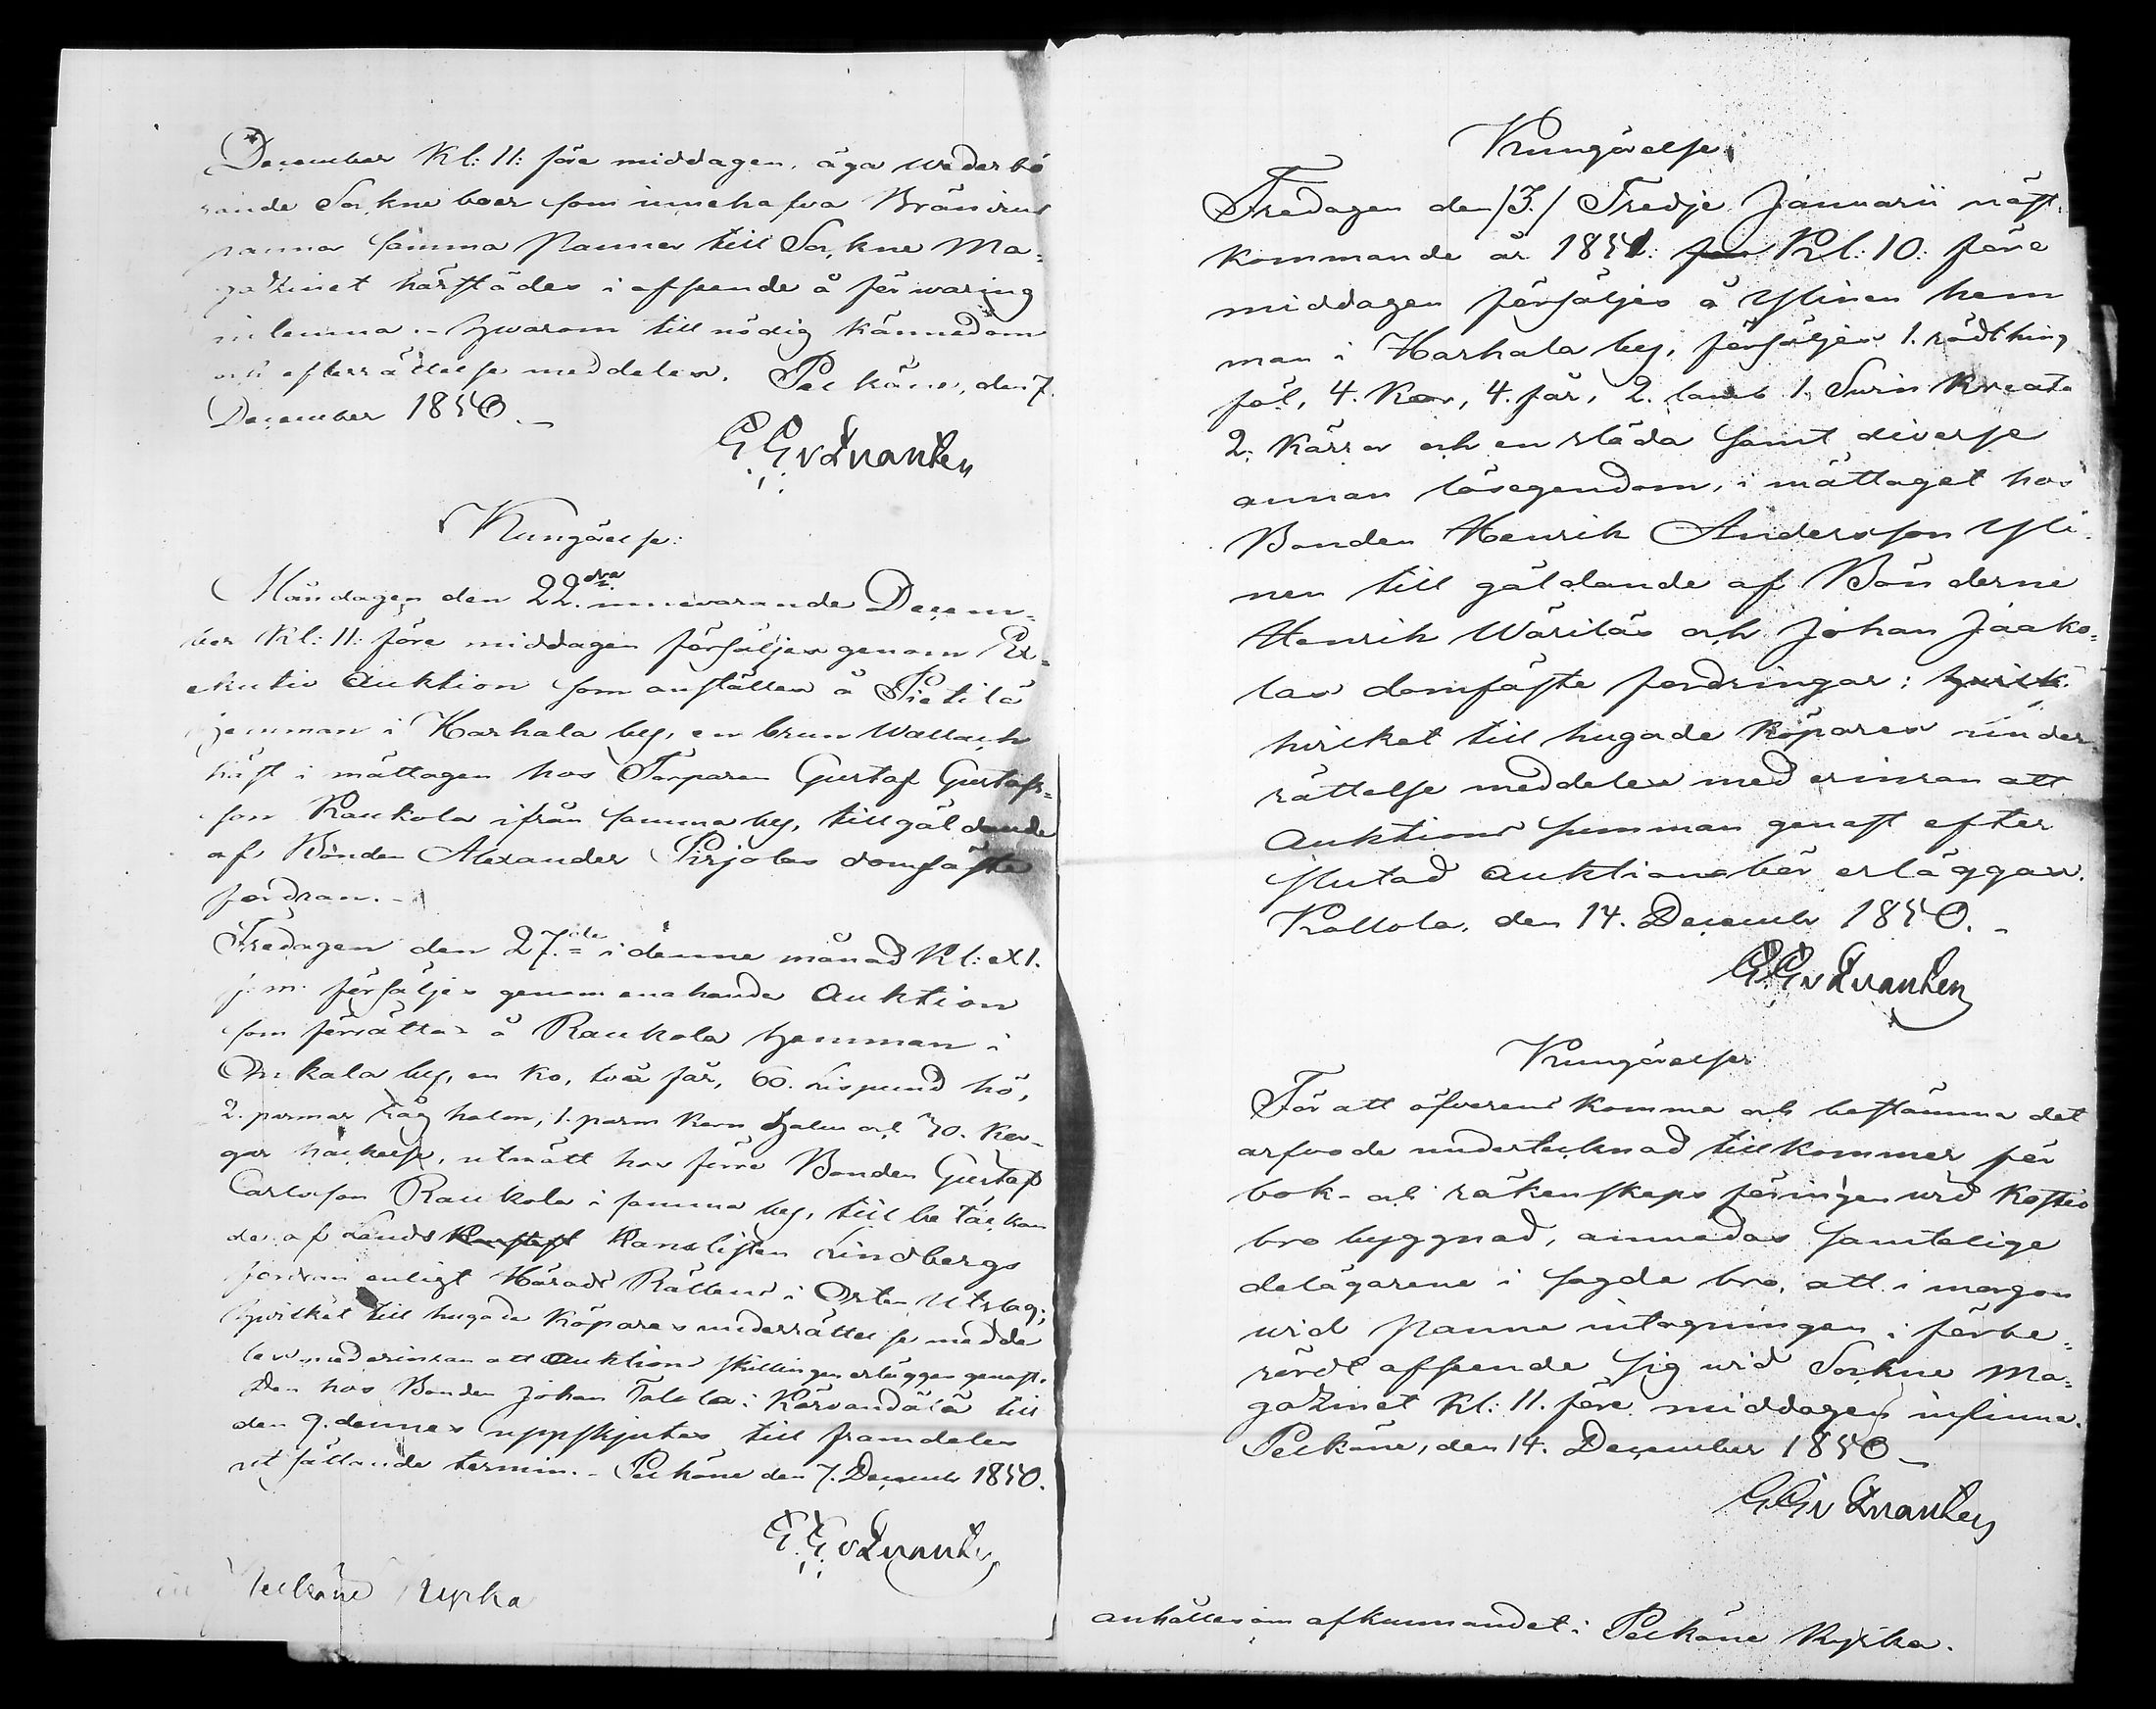 December Kl: 11: före middagen, äga wederbö
rande Sockneboer som innehafva Bränvins
pannor samma Pannor till Sockne Ma=
gazinet härstädes i afseende å förwaring
inlemna. – Hwarom till nödig kännedom
och efterrättelse meddelas. Pelkäne, den 7.
December 1850. –
G. G. v Qvanten
Kungörelse:
Måndagen den 22.dra innevarande Decem=
ber Kl: 11: före middagen försäljes genom Ex=
ekutiv Auktion som anställes å Pietilä
hemman i Harhala by, en brun Wallach
häst i mättagen hos Torparen Gustaf Gustafs=
son Raukola ifrån samma by, till gäldande
af Bonden Alexander Pirjolas domfäste
fordran. –
Fredagen den 27.de i denne månad Kl: XI.
f. m. försäljes genom enahanda Auktion
som förrättas å Raukola hemman i
by, en ko, två får, 60. Lispund hö,
2. parmar Råghalm, 1. parm Korn halm och 30. Kor-
gar hackelse, utmätt hos förre Bonden Gustaf
Carlsson Raukola i samma by, till betäckan
de af Lands Kanslisten Lindbergs
fordran enligt Härads Rättens i Orten Utslag;
hwilket till hugade Köpares underrättelse medde
las med erinran att Auktions skillingen erlägges genast.
Den hos Bonden Johan Talola i till
den 9. dennes uppskjutes till framdeles
utsättande termin. – Pelkäne den 7. December 1850.
G. G. v Qvanten
Pelkäne Kyrka
Kungörelse
Fredagen den /3./ Tredje Januarii näst=
kommande år 1851. Kl: 10: före
middagen försäljes å Ylinen hem
man i Harhala by, försäljes 1. rödt hing
föl, 4. Kor, 4. får, 2. lamb 1. Svin Kreatur
2. Kärror och en släda samt diverse
annan lösegendom, i mättaget hos
Bonden Henrik Andersson Yli=
nen till gäldande af Bönderne
Henrik Wäriläs och Johan Jaako=
las domfäste fordringar: hwilk
hvilket till hugade köpares under=
rättelse meddelas med erinran att
Auktions summan genast efter
slutad auktion bör erläggas.
Kollola, den 14. Decembr 1850. –
G. G. v Qvanten
Kungörelse
För att öfverens komma och bestämma det
arfvode undertecknad tillkommer för
bok- och räkenskaps föringen wid Kostia
bro byggnad, anmodas samtelige
delägarene i sagde bro, att i morgon
wid Panne intagningen i förbe=
rördt afseende sig wid Sockne Ma=
gazinet Kl: 11. före middagen infinna.
Pelkäne, den 14. December 1850 –
G G v Qvanten
anhålles om afkunnandet i Pelkäne Kyrka.